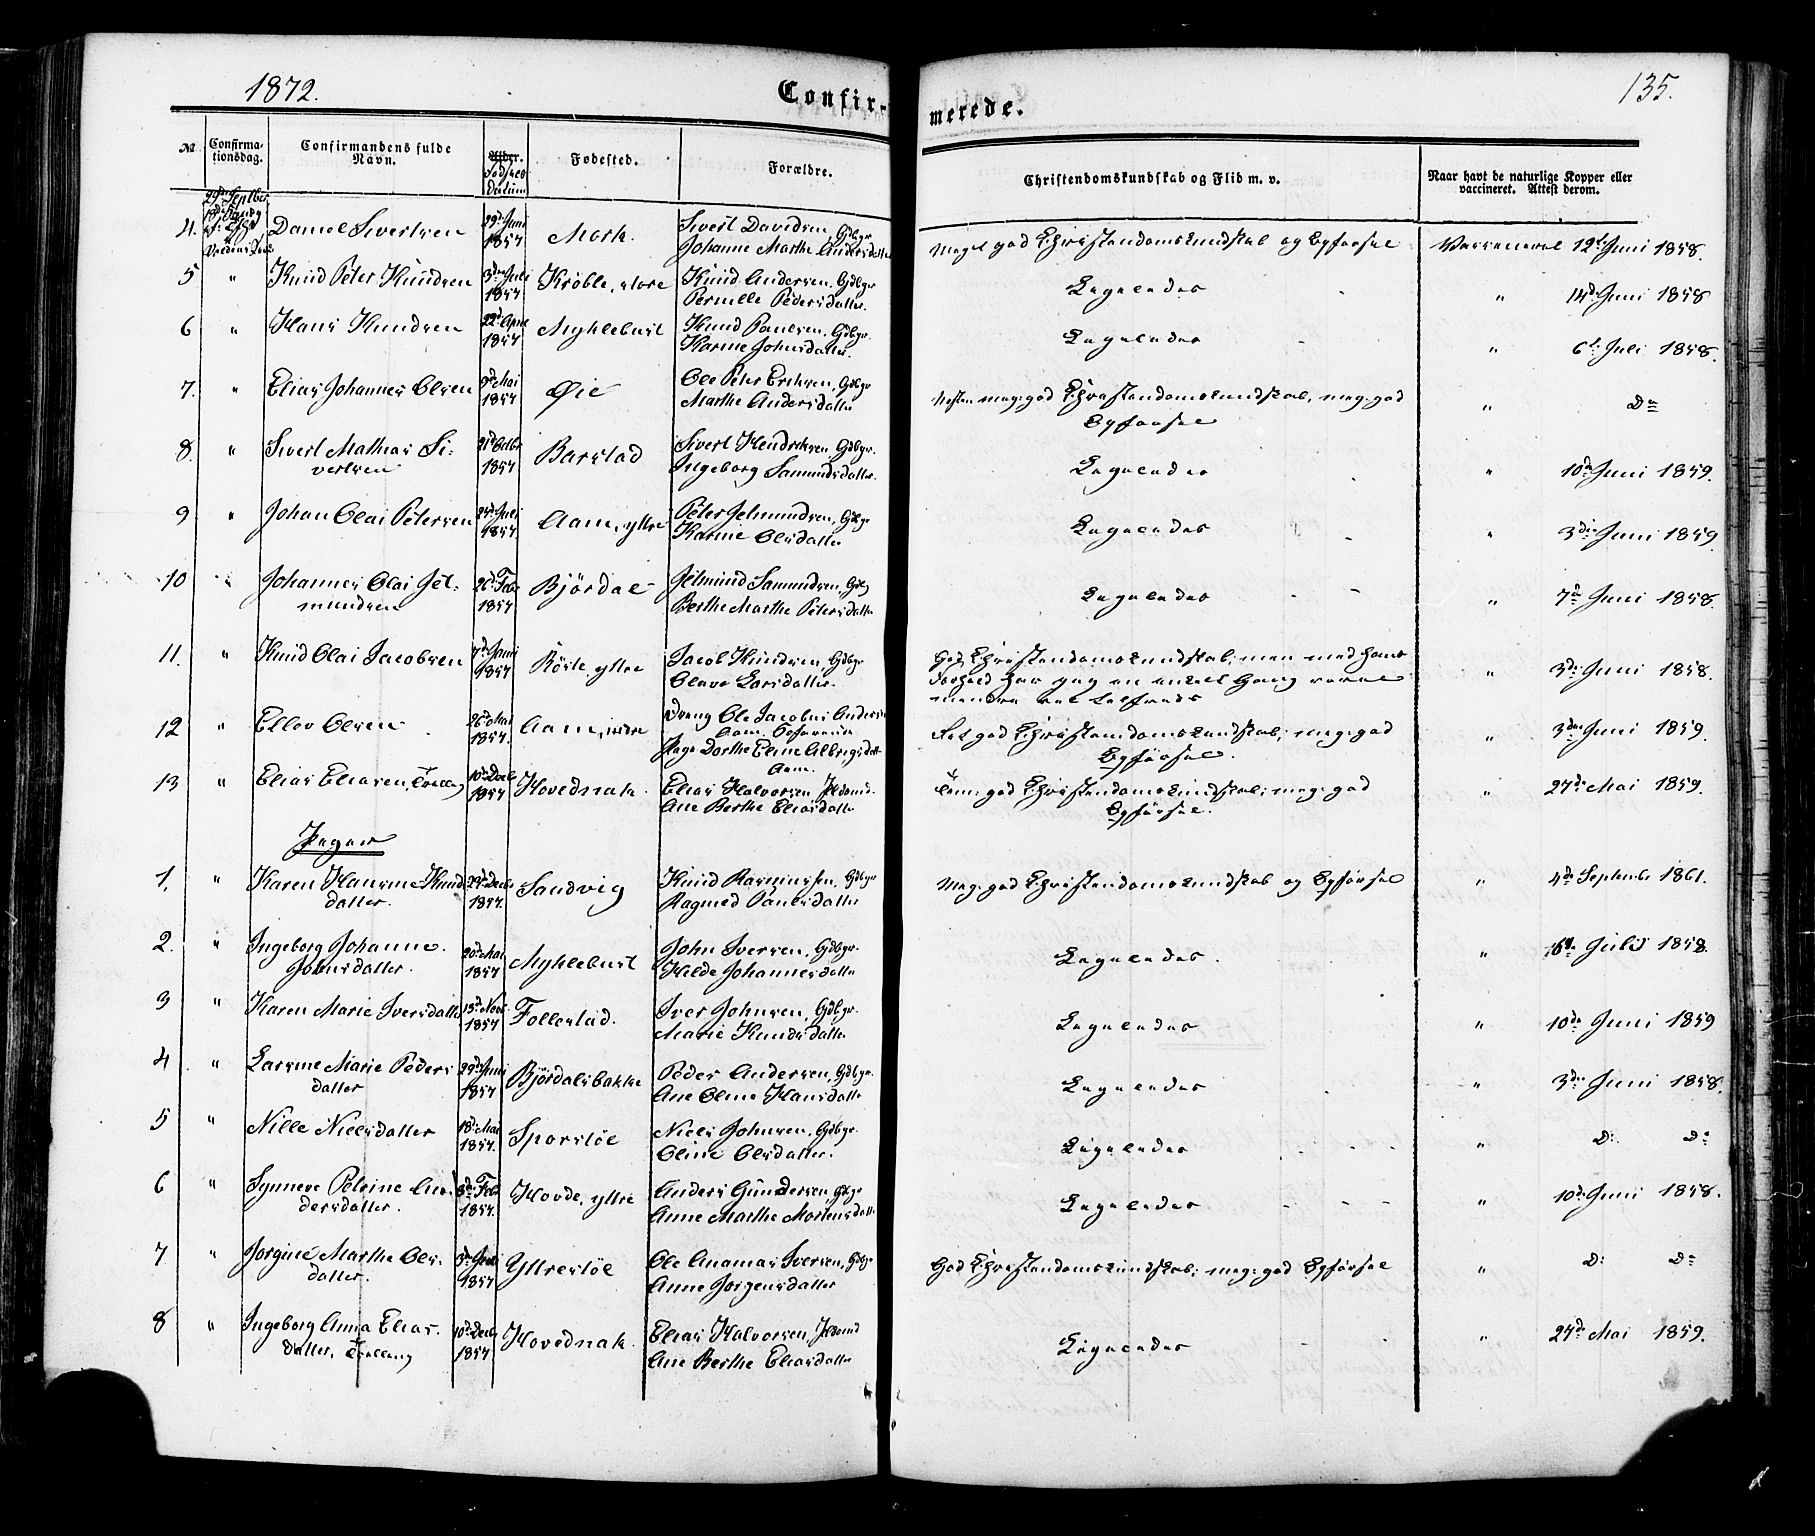 1872.
Confir-
merede.
135.
№
Confirma-
tionsdag.
Confirmandens fulde
Navn.
Alder.
Fødsels
Datum
Fødested.
Forældre.
Christendomskundskab og Flid m. v.
Naar havt de naturlige Kopper eller
vaccineret. Attest derom.
4. Daniel Sivertsen 29d Juni 1857 Mork. Sivert Davidsen, Gdbgr. Johanne Marthe Andersdatter Meget god Christendomskundskab og Opførsel Vaccineret 12te Juni 1858.
5 " Knud Peter Knudsen 3die Juli 1857 Krøble, store Knud Andersen, Gdbgr Pernille Pedersdatter. Ligeledes " 14de Juni 1858
6 " Hans Knudsen 22d April 1857 Myklebust Knud Paulsen, Gdbgr. Karine Johnsdatter. Ligeledes " 6te Juli 1858.
7. " Elias Johannes Olsen 9d Mai 1857 Øie Ole Peter Eriksen, Gdbgr Marthe Andersdatter Næsten meg: god Christendomskundskab, meg: god Opførsel " Do
8. " Sivert Mathias Si-
vertsen 21d Octbr 1857 Barstad Sivert Hendriksen, Gdbgr. Ingeborg Samundsdatter. Ligeledes " 10de Juni 1859.
9 " Johan Olai Petersen 24d Juli 1857. Aam, ytre Peter Jetmundsen, Gdbgr Karine Olsdatter Ligeledes " 3die Juni 1859.
10 " Johannes Olai Jet-
mundsen 26d Feb 1857 Bjørdal Jetmund Samundsen, Gdbg Berthe Marthe Petersdatter Ligeledes " 7de Juni 1858.
11. " Knud Olai Jacobsen 7d Juni 1857 Røsle, ytre Jacob Knudsen, Gdbgr Olave Larsdatter. God Christendomskundskab; men med Hans
Forhold har jeg en enkelt Gang været
mindre vel tilfreds " 3die Juni 1858.
12 " Ellev Olsen 26d Mai 1857. Aam, indre Dreng Ole Jacobus Anders
Aam.
Pige Dorthe Eline Albrigtsdatter
Aam. god Christendomskundskab; meg: god
Opførsel. " 3die Juni 1859.
13 " Elias Eliasen, Tvilling 10d Decbr 1857 Hovednak. Elias Halvorsen, Ane Berthe Eliasdatter god Christendomskundskab; meg: god
Opførsel. " 27de Mai 1859.
Piger
1. " Karen Hansine Knuds
datter. 29d Decbr 1857. Sandvig Knud Rasmussen, Gdbgr Ragnild Paulsdatter Meg: god Christendomskundskab og Opførsel " 4de Septemb 1861.
2. " Ingeborg Johanne
Johnsdatter. 20d Mai 1857 Myklebust John Iversen, Gdbgr. Hilde Johannesdatter Ligeledes. " 16de Juli 1858.
3 " Karen Marie Iversdatter 13d Novb. 1857 Follestad. Iver Johnsen, Gdbgr. Marie Knudsdatter Ligeledes " 10de Juni 1859
4 " Larsine Marie Peders
datter 29d Juni 1857 Bjørdalsbakke Peder Andersen, Gdbgr. Ane Oline Hansdatter Ligeledes " 3die Juni 1858.
5 " Nille Nielsdatter 18d Mai 1857. Sporstøl Niels Johnsen, Gdbgr. Oline Olsdatter. Ligeledes " Do Do
6 " Synneve Petrine An-
dersdatter. 8de Feb 1857. Hovde, ytre Anders Gundersen, Gdbgr Anne Marthe Mortensdatter Ligeledes " 10de Juni 1858.
7 " Jorgine Marthe Ols-
datter. 3die Juli 1857 Yttrestøl Ole Ananias Iversen, Gdbgr Anne Jørgensdatter God Christendomskundskab; meg: god Opførsel " Do Do
8 " Ingeborg Anna Elias-
datter, Tvilling 10d Decbr 1857 Hovednak. Elias Halvorsen, Ane Berthe Eliasdatter Ligeledes " 27de Mai 1859.